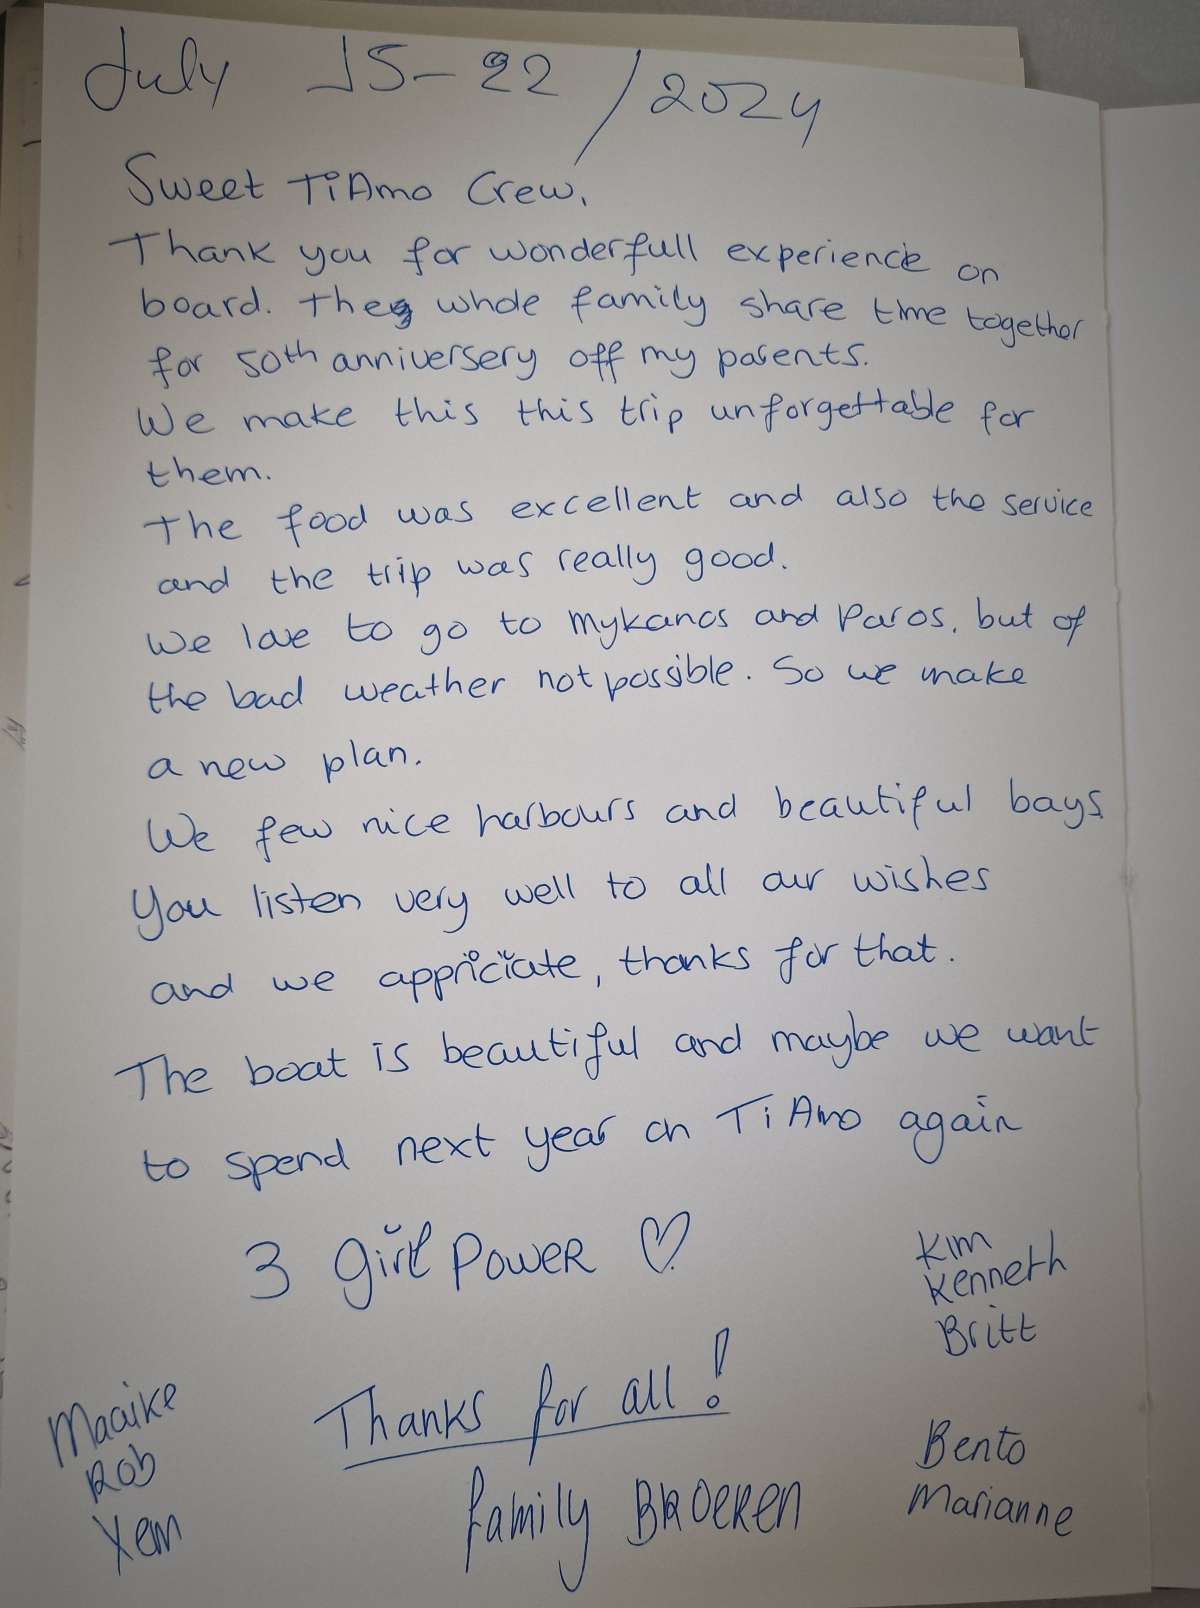 July 15-22/2024
Sweet TiAmo Crew,
Thank you for wonderfull experience on
board. The whole family share time together
for 50th anniversery off my parents.
We make this this trip unforgettable for
them.
The food was excellent and also the service
and the trip was really good.
We love to go to Mykanos and Paros, but of
the bad weather not possible. So we make
a new plan.
We few nice harbours and beautiful bays
You listen very well to all our wishes
and we appriciate, thanks for that.
The boat is beautiful and maybe we want
to spend next year on TiAmo again
3 Girl POWER ♡
Kim
Kenneth
Britt
Maaike
Rob
Yem
Thanks for all!
family BROEREN
Bento
Marianne